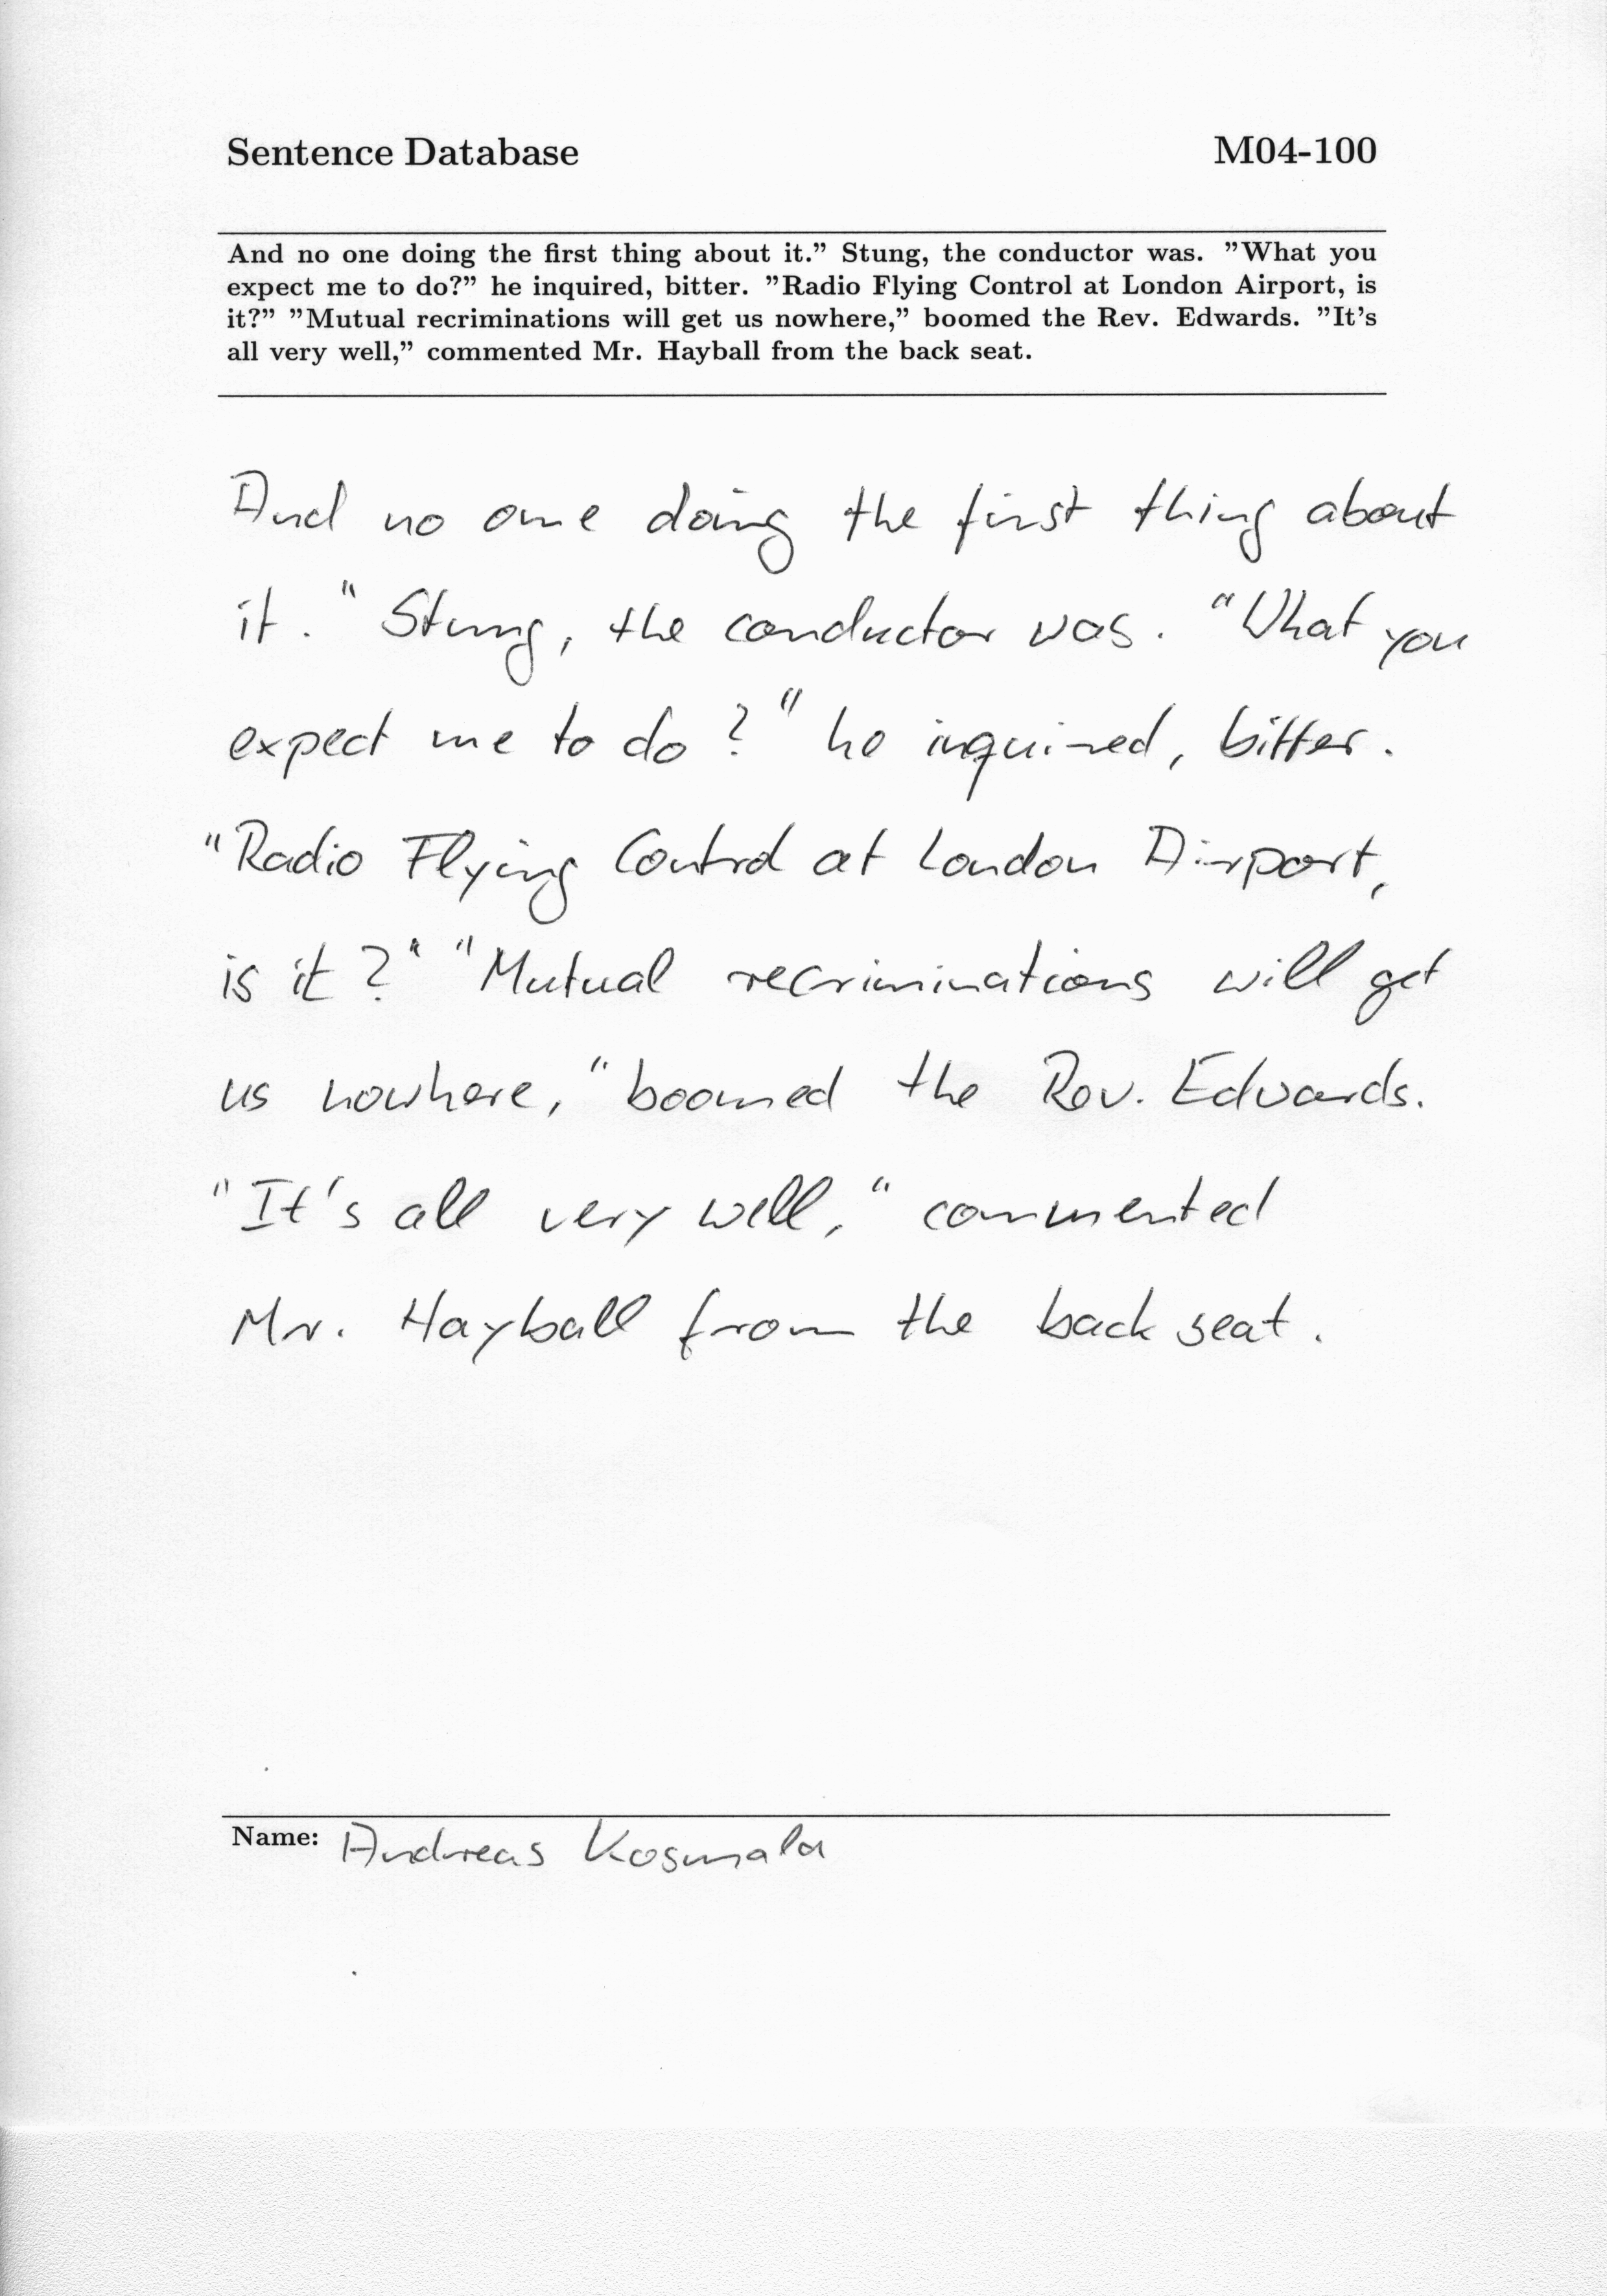 Sentence Database M04-100
And no one doing the first thing about it.” Stung, the conductor was. ”What you
expect me to do?” he inquired, bitter. ”Radio Flying Control at London Airport, is
it?” ”Mutual recriminations will get us nowhere,” boomed the Rev. Edwards. ”It’s
all very well,” commented Mr. Hayball from the back seat.
And no one doing the first thing about
it." Stung, the conductor was. "What you
expect me to do?" he inquired, bitter.
"Radio Flying Control at London Airport,
is it?" "Mutual recriminations will get
us nowhere," boomed the Rev. Edwards.
"It's all very well," commented
Mr. Hayball from the back seat.
Name: Andreas Kosmala